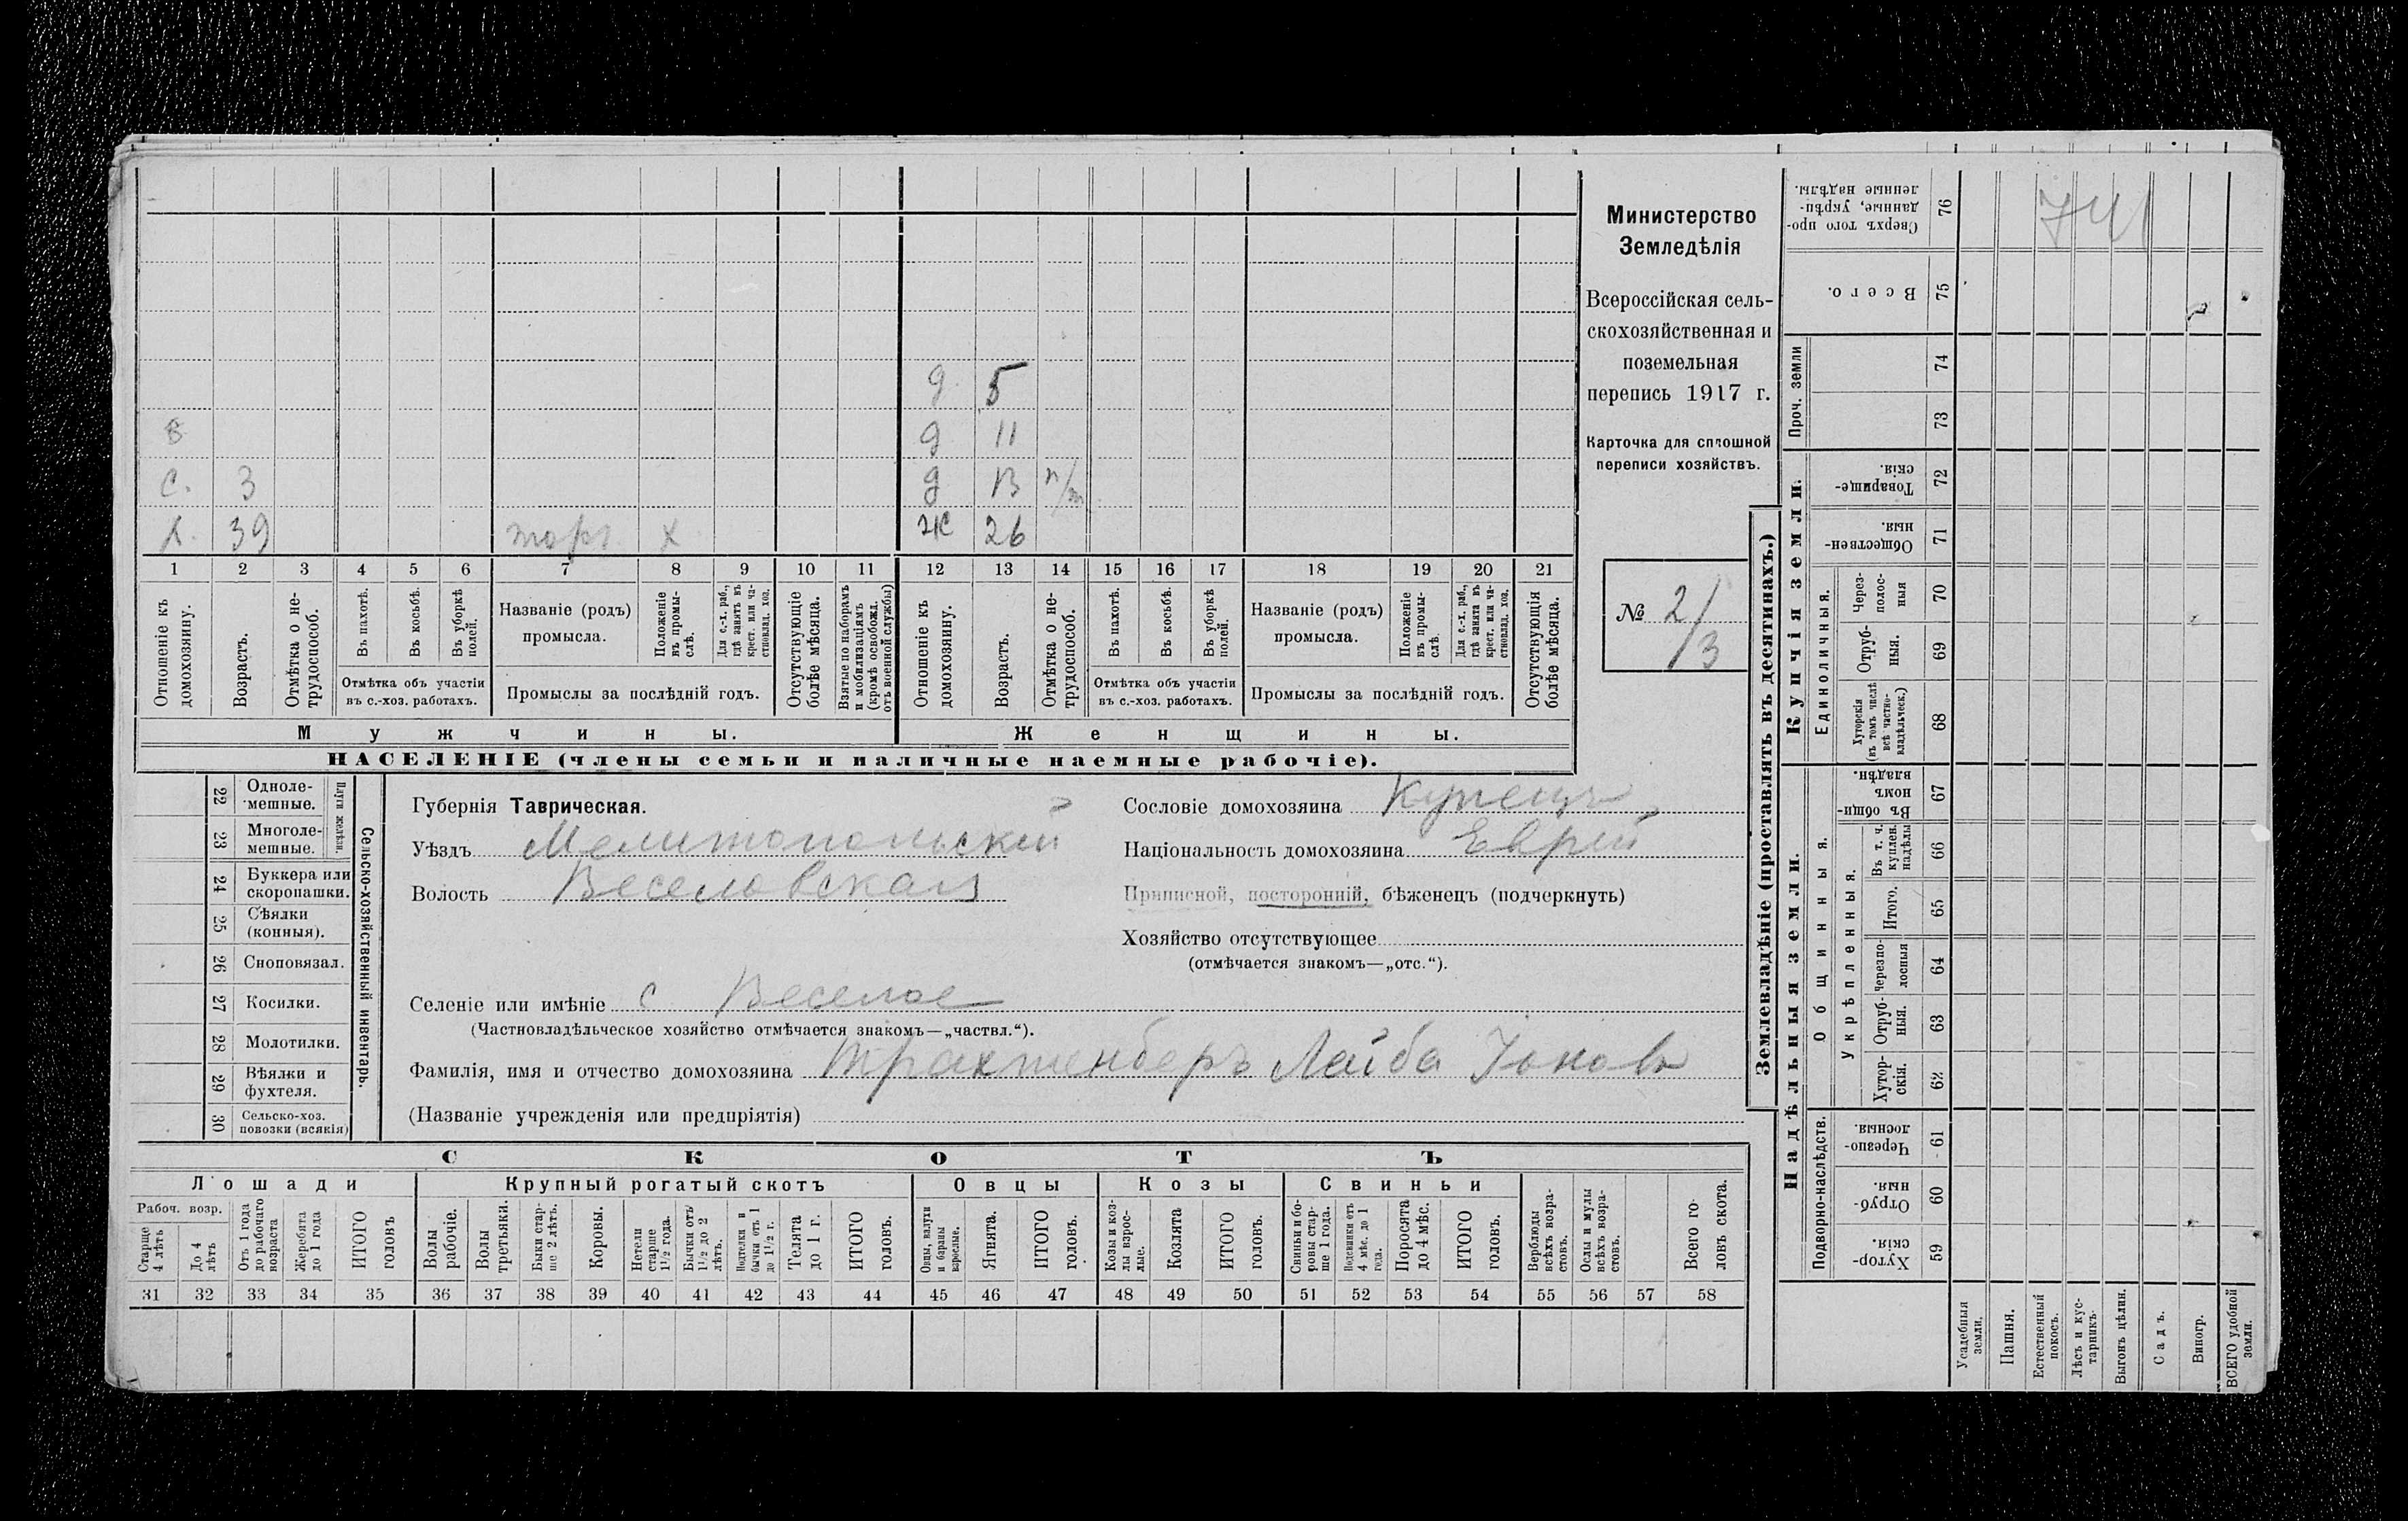 Министерство
Земледѣлія
Всероссійская сель-
скохозяйственная и
поземельная
перепись 1917 г.
Карточка для сплошной
переписи хозяйствъ.
№ 2/3
741
д 5
в д 11
с. 3 д 13 н/т
х. 39 торг. х ж 26
1 2 3 4 5 6 7 8 9 10 11 12 13 14 15 16 17 18 19 20 21
Отношеніе къ домохозяину.
Возрастъ.
Отмѣтка о не-трудоспособ.
Въ пахотѣ.
Въ косьбѣ.
Въ уборкѣ полей.
Отмѣтка объ участіи
въ с.-хоз. работахъ.
Названіе (родъ)
промысла.
Положеніе въ промы-слѣ.
Для с.-х. раб., гдѣ занятъ въ крест. или ча-стновлад. хоз.
Промыслы за послѣдній годъ.
Отсутствующіе болѣе мѣсяца.
Взятые по наборамъ и мобилизаціямъ (кромѣ освобожд. отъ военной службы)
Отношеніе къ домохозяину.
Возрастъ.
Отмѣтка о не-трудоспособ.
Въ пахотѣ.
Въ косьбѣ.
Въ уборкѣ полей.
Отмѣтка объ участіи
въ с.-хоз. работахъ.
Названіе (родъ)
промысла.
Положеніе въ промы-слѣ.
Для с.-х. раб., гдѣ занята въ крест. или ча-стновлад. хоз.
Промыслы за послѣдній годъ.
Отсутствующія болѣе мѣсяца.
Мужчины. Женщины.
НАСЕЛЕНІЕ (члены семьи и наличные наемные рабочіе).
22 Одноле-мешные.
23 Многоле-мешные.
Плуги желѣзн.
24 Буккера или скоропашки.
25 Сѣялки (конныя).
26 Сноповязал.
27 Косилки.
28 Молотилки.
29 Вѣялки и фухтеля.
30 Сельско-хоз. повозки (всякія)
Сельско-хозяйственный инвентарь.
Губернія Таврическая.
Уѣздъ Мелитопольскій
Волость Веселовская
Сословіе домохозяина Купецъ
Національность домохозяина Еврей
Приписной, посторонній, бѣженецъ (подчеркнуть)
Хозяйство отсутствующее
(отмѣчается знакомъ—„отс.“).
Селеніе или имѣніе с Веселое
(Частновладѣльческое хозяйство отмѣчается знакомъ—„частвл.“).
Фамилія, имя и отчество домохозяина Трахтенберъ Лейба Іоновъ
(Названіе учрежденія или предпріятія)
СКОТЪ
Лошади Крупный рогатый скотъ Овцы Козы Свиньи
Рабоч. возр.
Старше 4 лѣтъ
До 4 лѣтъ
Отъ 1 года до рабочаго возраста
Жеребята до 1 года
ИТОГО головъ
Волы рабочіе.
Волы третьяки.
Быки стар-ше 2 лѣтъ.
Коровы.
Нетели старше 1½ года.
Бычки отъ 1½ до 2 лѣтъ.
Подтелки и бычки отъ 1 до 1½ г.
Телята до 1 г.
ИТОГО головъ.
Овцы, валухи и бараны взрослые.
Ягнята.
ИТОГО головъ.
Козы и коз-лы взрос-лые.
Козлята
ИТОГО головъ.
Свиньи и бо-ровы стар-ше 1 года.
Подсвинки отъ 4 мѣс. до 1 года.
Поросята до 4 мѣс.
ИТОГО головъ.
Верблюды всѣхъ возра-стовъ.
Ослы и мулы всѣхъ возра-стовъ.
Всего го-ловъ скота.
31 32 33 34 35 36 37 38 39 40 41 42 43 44 45 46 47 48 49 50 51 52 53 54 55 56 57 58
Землевладѣніе (проставлять въ десятинахъ.)
Купчія земли.
Надѣльныя земли.
76 Сверхъ того про-данные, укрѣп-ленные надѣлы.
75 Всего.
Проч. земли
74
73
72 Товарище-скія.
71 Обществен-ныя.
Единоличныя.
70 Через-полос-ныя
69 Отруб-ныя.
68 Хуторскія (въ томъ числѣ всѣ частно-владѣльческ.)
Общинныя.
67 Въ общи-номъ владѣн.
Укрѣпленныя.
66 Въ т. ч. куплен. надѣлы
65 Итого.
64 черезпо-лосныя
63 Отруб-ныя.
62 Хутор-скія.
Подворно-наслѣдств.
61 Черезпо-лосныя.
60 Отруб-ныя.
59 Хутор-скія.
Усадебныя земли.
Пашня.
Естественный покосъ.
Лѣсъ и кус-тарникъ.
Выгонъ цѣлин.
Садъ.
Виногр.
ВСЕГО удобной земли.